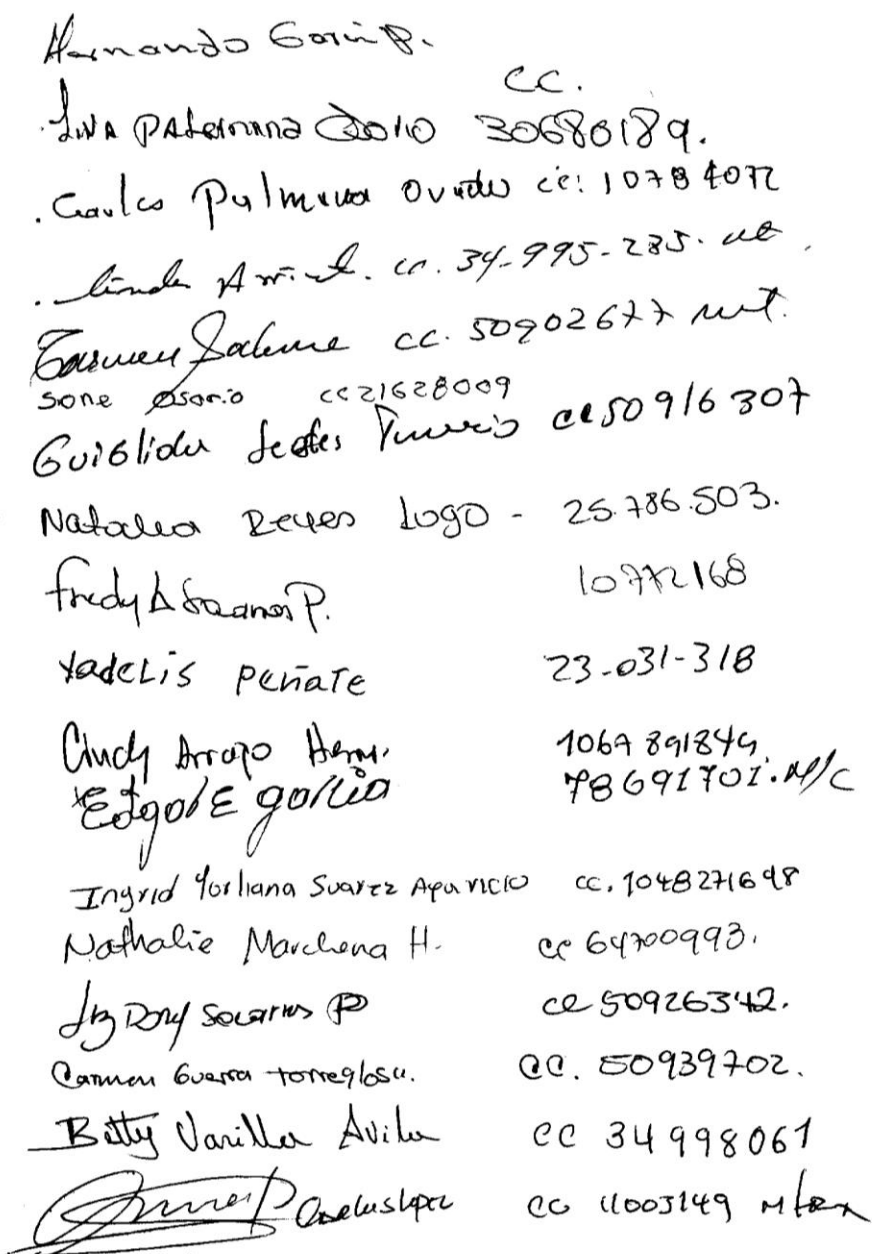 Hernando
CC.
Lina Paternina 30680189.
. Carlos Palmera Oviedo cc: 10784072
. Linda cc. 34-995-285.
Carmen Saleme cc. 50902677 mt.
Sone Osorio cc 21628009
cc 50916307
Natalia Reyes Lugo - 25.786.503.
Fredy P. 10772168
Yadelis Peñate 23-031-318
Cindy Arroyo Hern.
Edgar E García 78691701. M/C
Ingrid Yorliana Suarez Aparicio cc. 1048271698
Nathalie Marchena H. cc 64700993.
Dory Socarras P cc 50926342.
Carmen Guerra Torreglosa. CC. 50939702.
Betty Varilla Avila CC 34998061
CC 11003149